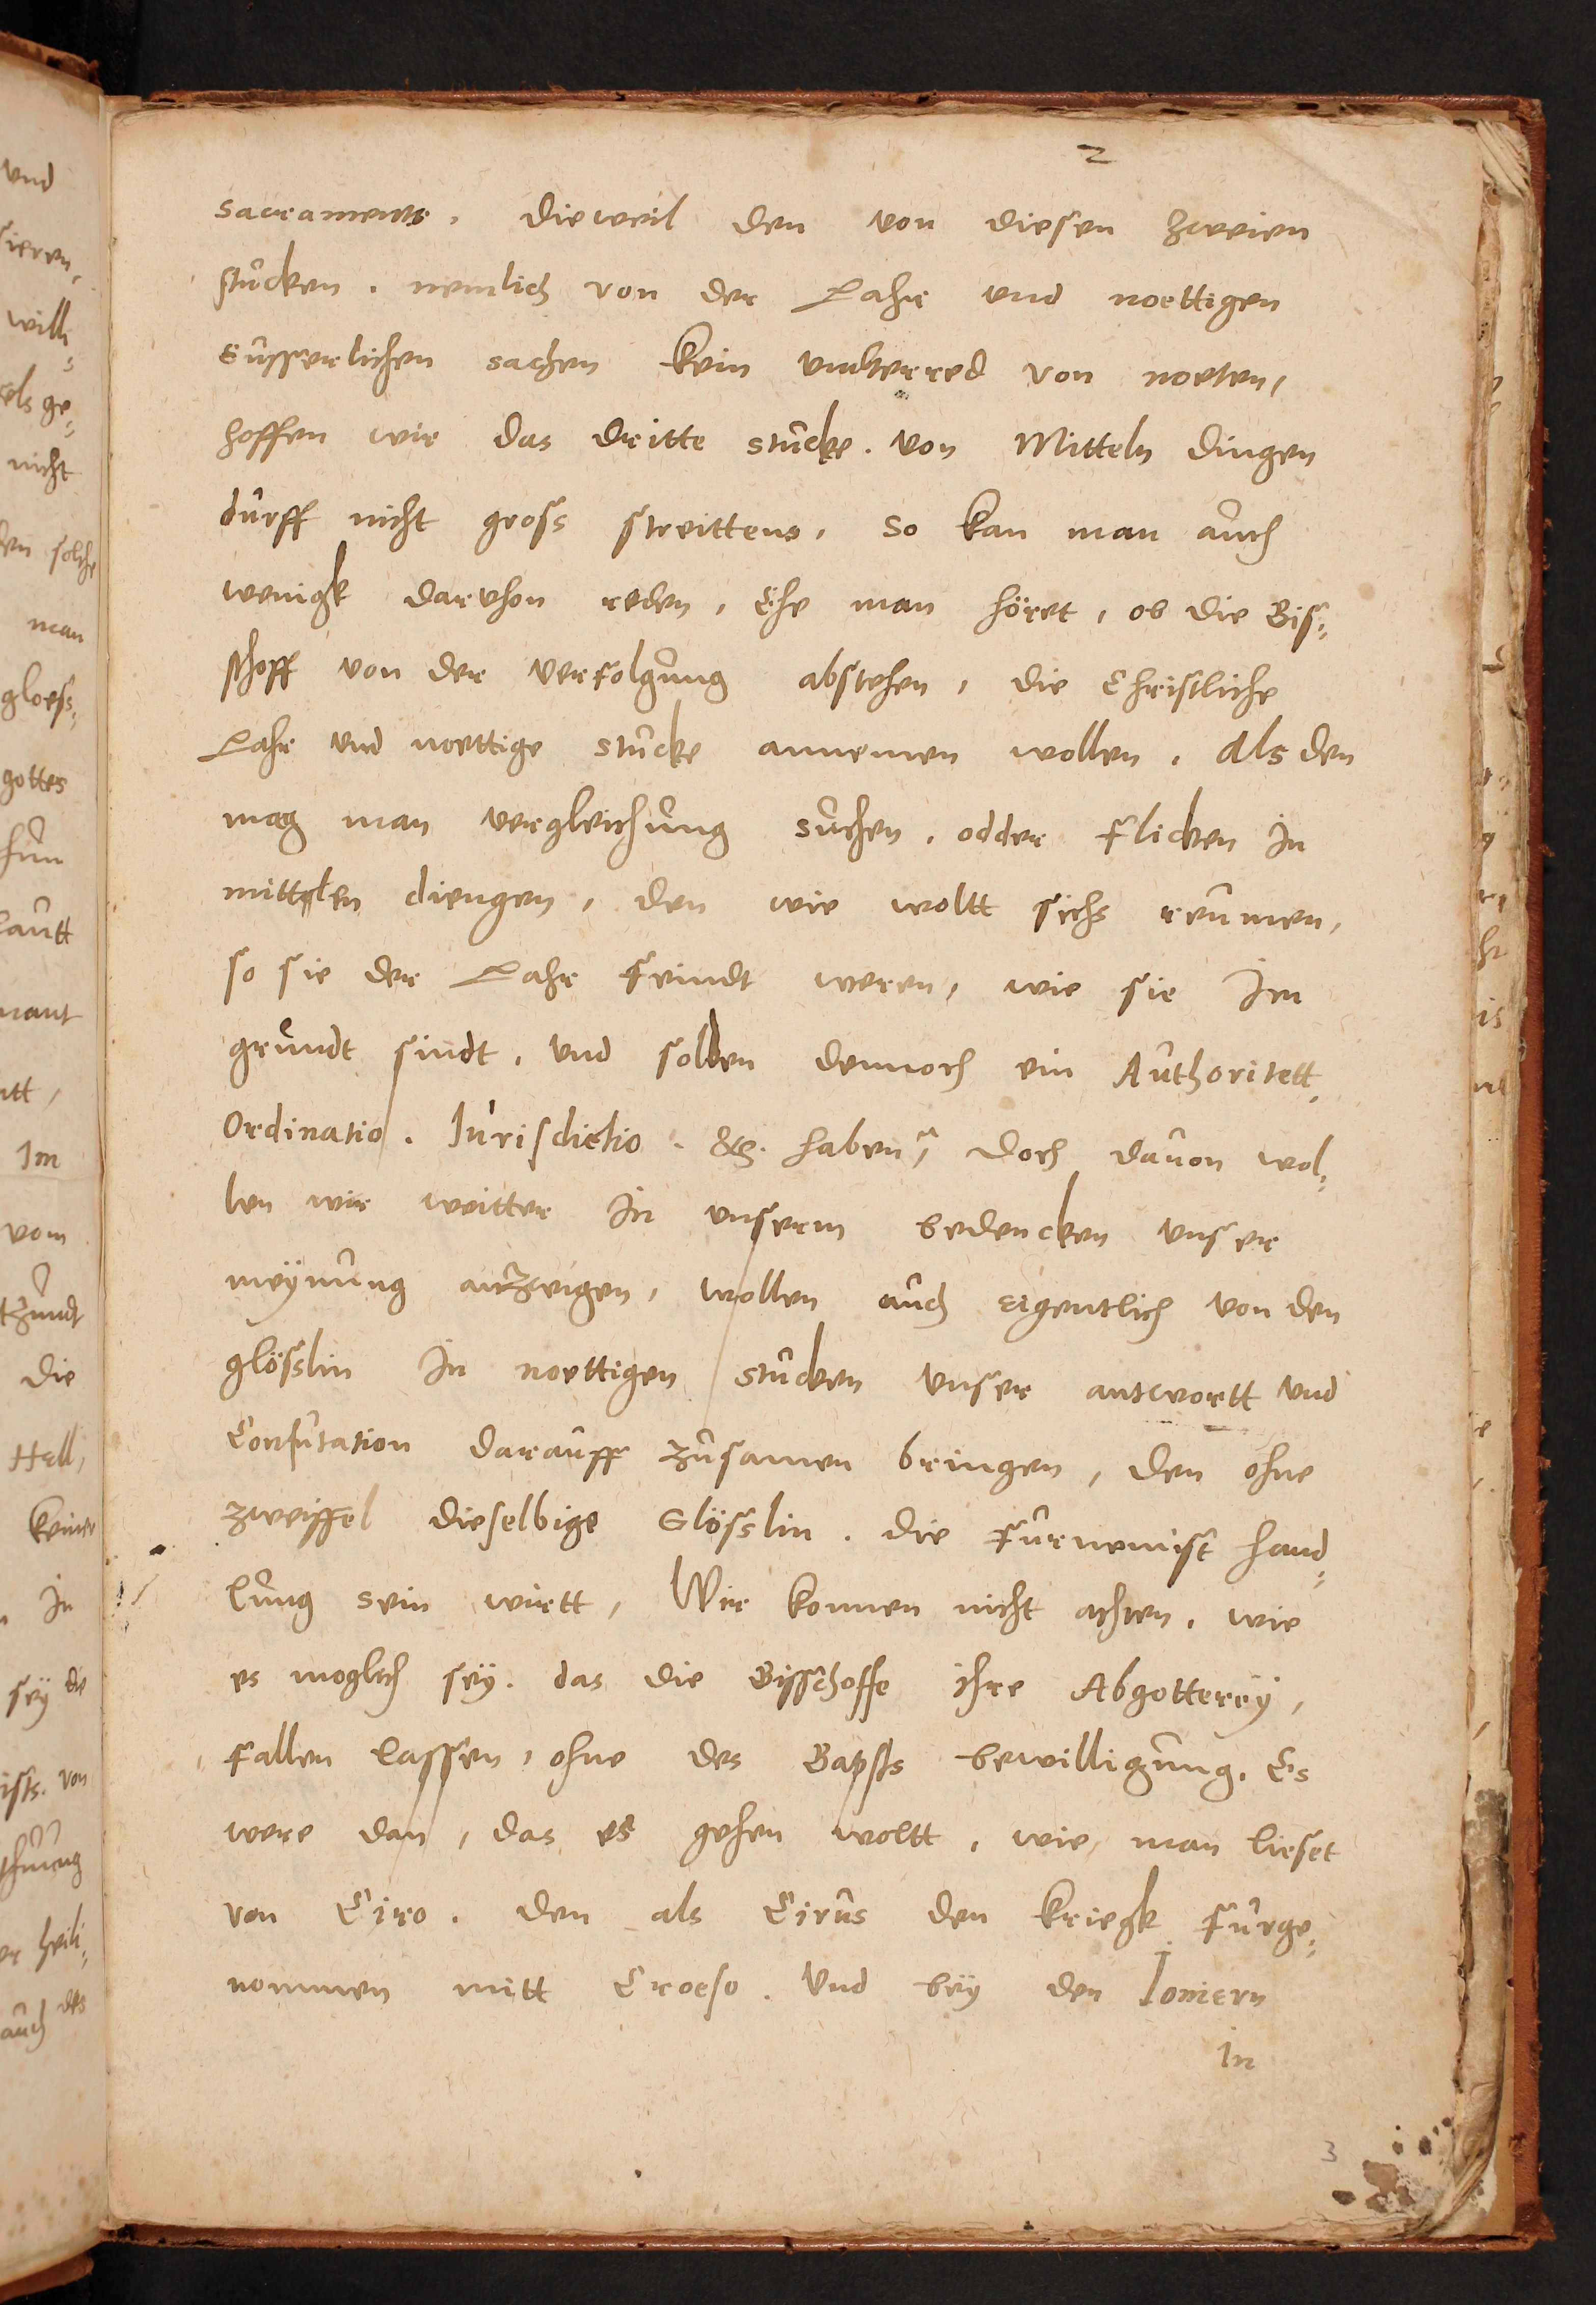 2
sacraments. dieweil den von diesen zweien
stucken. nemlich von der Lahr und noettigen
eusserlichen sachen kein underred von noeten,
hoffen wir das dritte stucke. von Mitteln dingen
durff nicht gross streittens, so kan man auch
wenigk darvhon reden, Ehe man höret, ob die Bis-
schoff von der verfolgung abstehen, die Christliche
Lahr und noettige stucke annemen wollen. Als den
mag man vergleichung suchen. odder flicken In
mittelen diengen, den wie woltt sichs reumen,
so sie der Lahr feindt weren, wie sie Im
grundt sindt. und sollen dennoch ein Authoritett,
Ordinatio. Iurisdictio. &c. haben, doch dauon wol-
len wir weitter In unserm bedencken unser
meÿnung anzeigen, wollen auch eigentlich von den
glösslin In noettigen stucken unser antwortt und
Confutation darauff zusamen bringen, den ohne
zweiffel dieselbige Glösslin. die furnemist hand-
lung sein wirtt, Wir konnen nicht achten. wie
es moglich seÿ. das die Bisschoffe ihre Abgottereÿ,
fallen lassen, ohne des Bapsts bewilligung. Es
were dan, das es gehen woltt, wie man lieset
von Ciro. den als Cirus den kriegk furge-
nommen mitt Croeso. Und beÿ den Ioniern
in
3